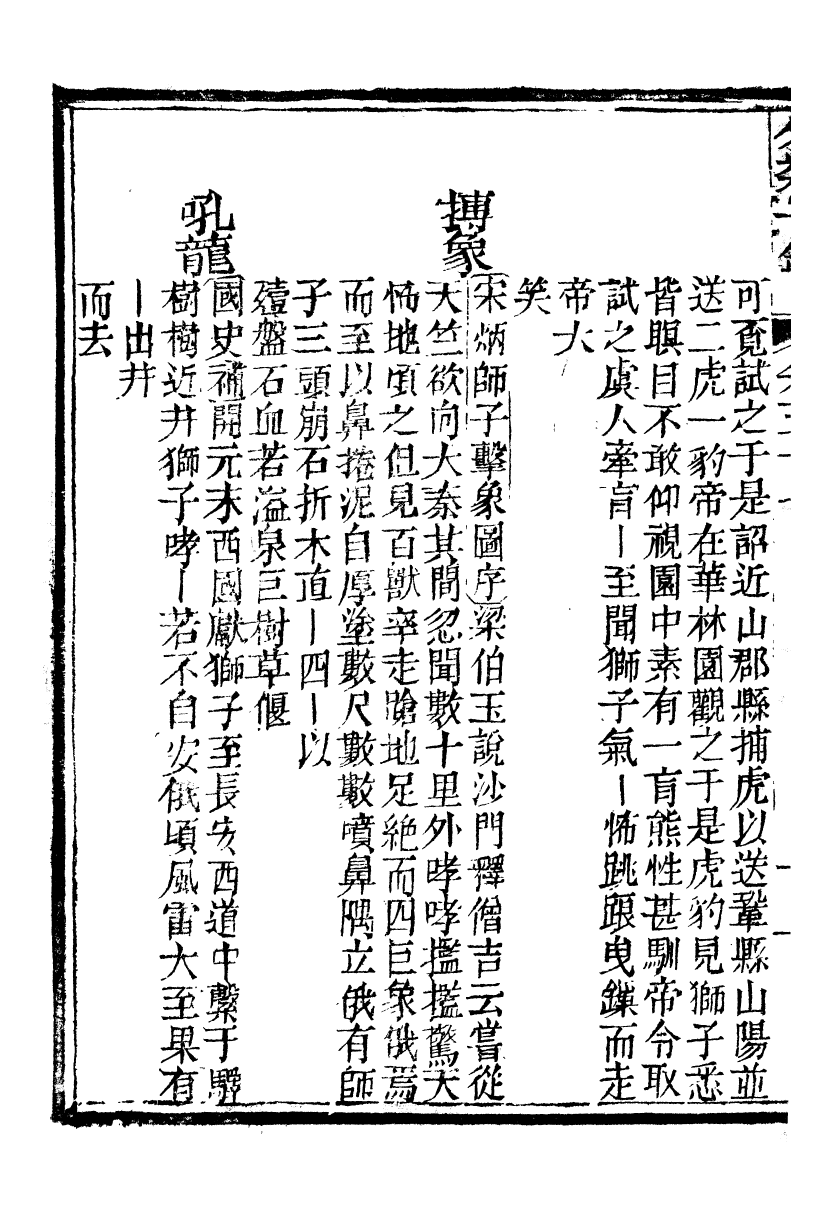 可覔試之于是詔近山郡縣捕虎以送鞏縣山陽並
送二虎一豹帝在華林園觀之于是虎豹見獅子悉
皆瞑目不敢仰視園中素有一盲熊性甚馴帝令取
試之虞人牽盲丨至聞獅子氣丨怖跳踉曳鏁而走
帝大
笑
搏象
宋炳師子擊象圖序梁伯玉說沙門釋僧吉云嘗從
天竺欲向大秦其間忽聞數十里外哮哮㩜㩜驚天
怖地頃之但見百獸率走蹌地足絶而四巨象俄焉
而至以鼻捲泥自厚塗數尺數數噴鼻隅立俄有師
子三頭崩石折木直丨四丨以
殪盤石血若溢泉巨樹草偃
吼龍
國史補開元末西國獻獅子至長安西道中繫于驛
樹樹近井獅子哮丨若不自安俄頃風雷大至果有
丨出井
而去